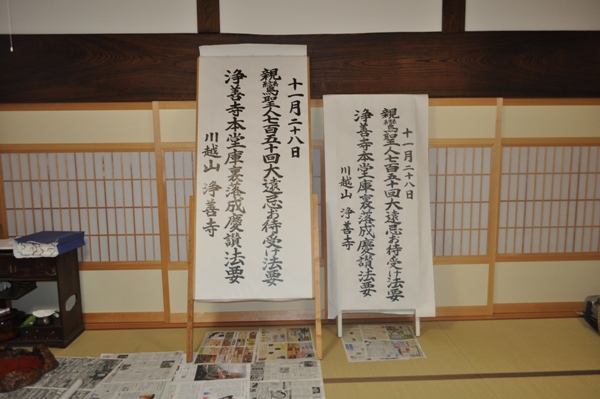 十一月二十八日
親鸞聖人七百五十回大遠忌お待受け法要
浄善寺本堂庫裏落成慶讃法要
川越山 浄善寺
十一月二十八日
親鸞聖人七百五十回大遠忌お待受け法要
浄善寺本堂庫裏落成慶讃法要
川越山 浄善寺